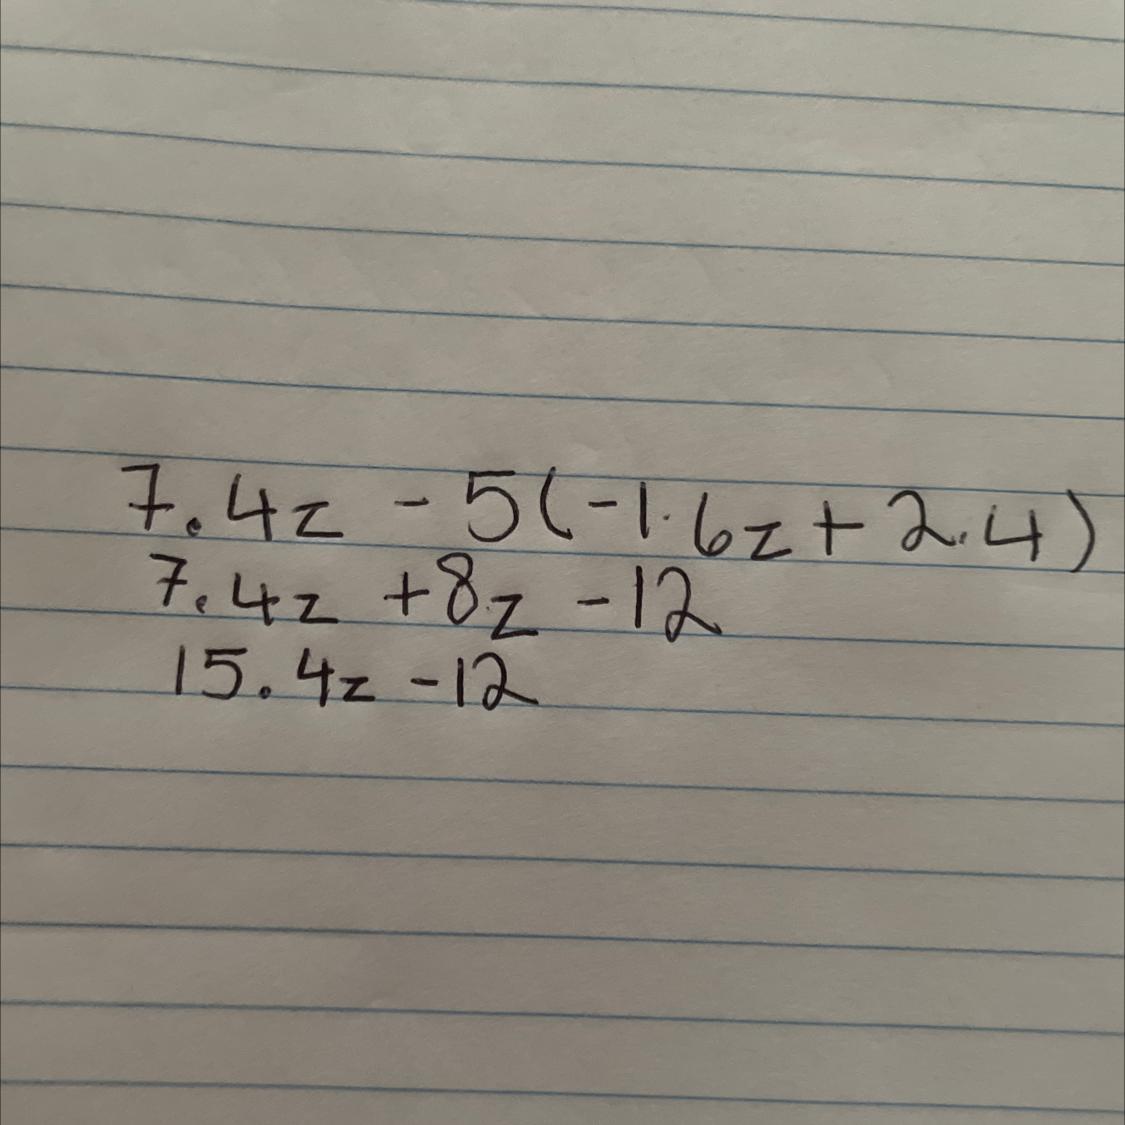 7.4z - 5(-1.6z + 2.4)
7.4z + 8z - 12
15.4z - 12